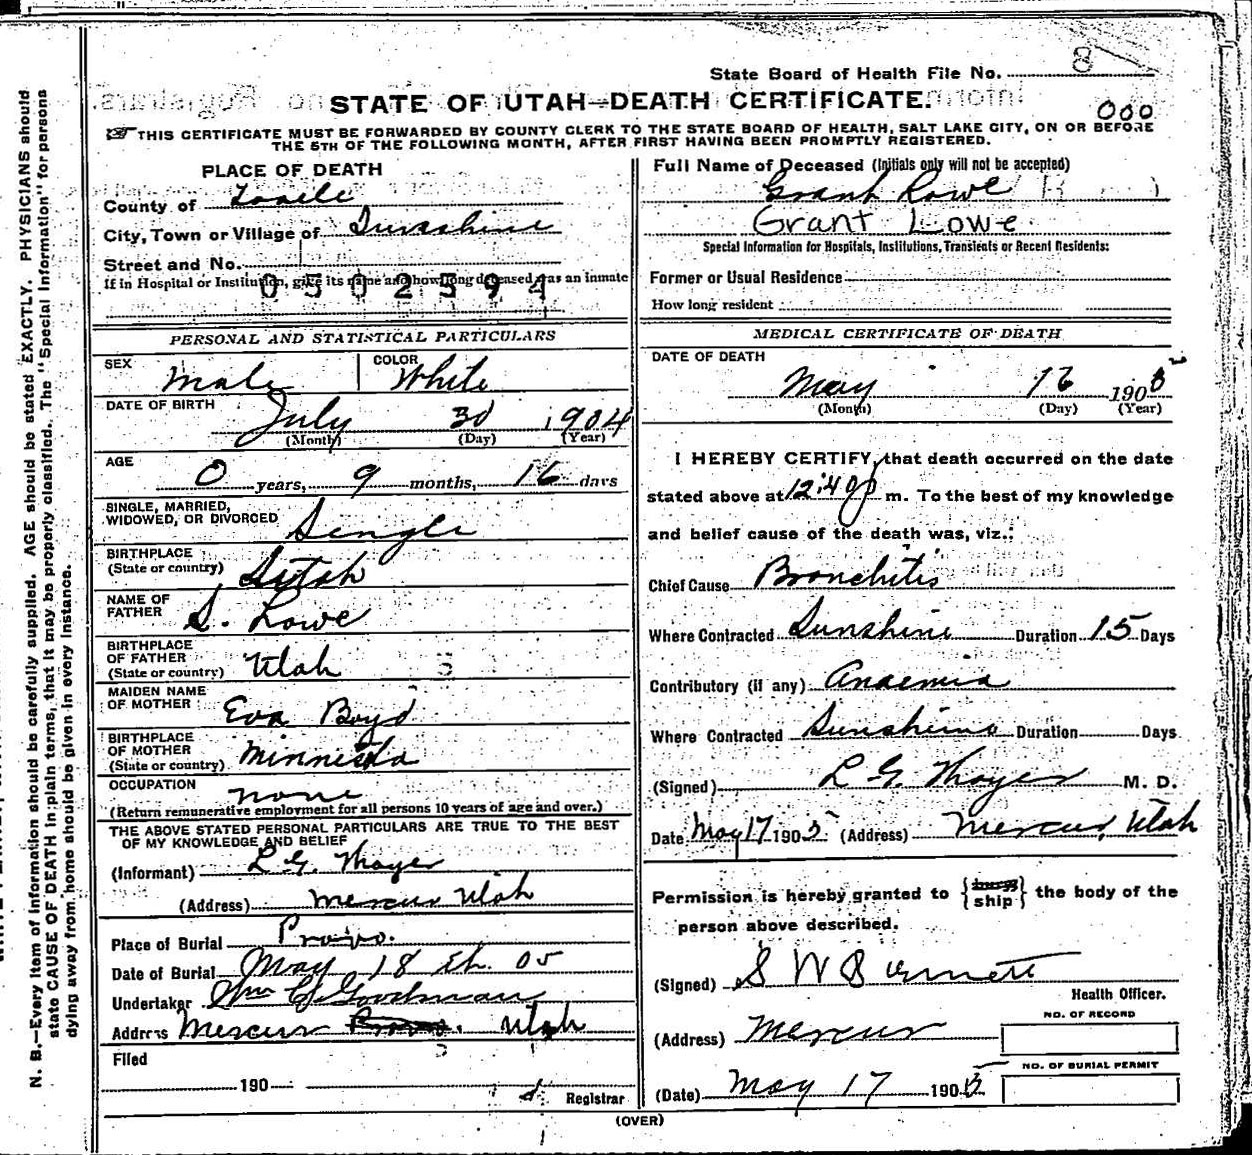 State Board of Health File No. 8
STATE OF UTAH—DEATH CERTIFICATE.
000
THIS CERTIFICATE MUST BE FORWARDED BY COUNTY CLERK TO THE STATE BOARD OF HEALTH, SALT LAKE CITY, ON OR BEFORE
THE 5TH OF THE FOLLOWING MONTH, AFTER FIRST HAVING BEEN PROMPTLY REGISTERED.
PLACE OF DEATH
County of Tooele
City, Town or Village of Sunshine
Street and No.
If in Hospital or Institution, give its name and how long deceased was an inmate
0502594
PERSONAL AND STATISTICAL PARTICULARS
SEX Male COLOR White
DATE OF BIRTH July 30 1904
(Month) (Day) (Year)
AGE 0 years, 9 months, 16 days
SINGLE, MARRIED,
WIDOWED, OR DIVORCED Single
BIRTHPLACE
(State or country) Utah
NAME OF
FATHER S. Lowe
BIRTHPLACE
OF FATHER
(State or country) Utah
MAIDEN NAME
OF MOTHER Eva Boyd
BIRTHPLACE
OF MOTHER
(State or country) Minnesota
OCCUPATION none
(Return remunerative employment for all persons 10 years of age and over.)
THE ABOVE STATED PERSONAL PARTICULARS ARE TRUE TO THE BEST
OF MY KNOWLEDGE AND BELIEF
(Informant) L. G. Thayer
(Address) Mercur Utah
Place of Burial Provo.
Date of Burial May 18 th. 05
Undertaker Wm C. Goodman
Address Mercur Utah
Filed
190
Registrar
Full Name of Deceased (Initials only will not be accepted)
Grant Lowe
Grant Lowe
Special Information for Hospitals, Institutions, Transients or Recent Residents:
Former or Usual Residence
How long resident
MEDICAL CERTIFICATE OF DEATH
DATE OF DEATH
May 16 1905
(Month) (Day) (Year)
I HEREBY CERTIFY, that death occurred on the date
stated above at 12:40 p m. To the best of my knowledge
and belief cause of the death was, viz.:
Chief Cause Bronchitis
Where Contracted Sunshine Duration 15 Days
Contributory (if any) Anaemia
Where Contracted Sunshine Duration Days
(Signed) L G. Thayer M. D.
Date May 17 1905 (Address) Mercur, Utah
Permission is hereby granted to {bury ship} the body of the
person above described.
(Signed) S W Burnett
Health Officer.
(Address) Mercur
NO. OF RECORD
NO. OF BURIAL PERMIT
(Date) May 17 1905
(OVER)
N. B.—Every item of information should be carefully supplied. AGE should be stated EXACTLY. PHYSICIANS should
state CAUSE OF DEATH in plain terms, that it may be properly classified. The "Special Information" for persons
dying away from home should be given in every instance.